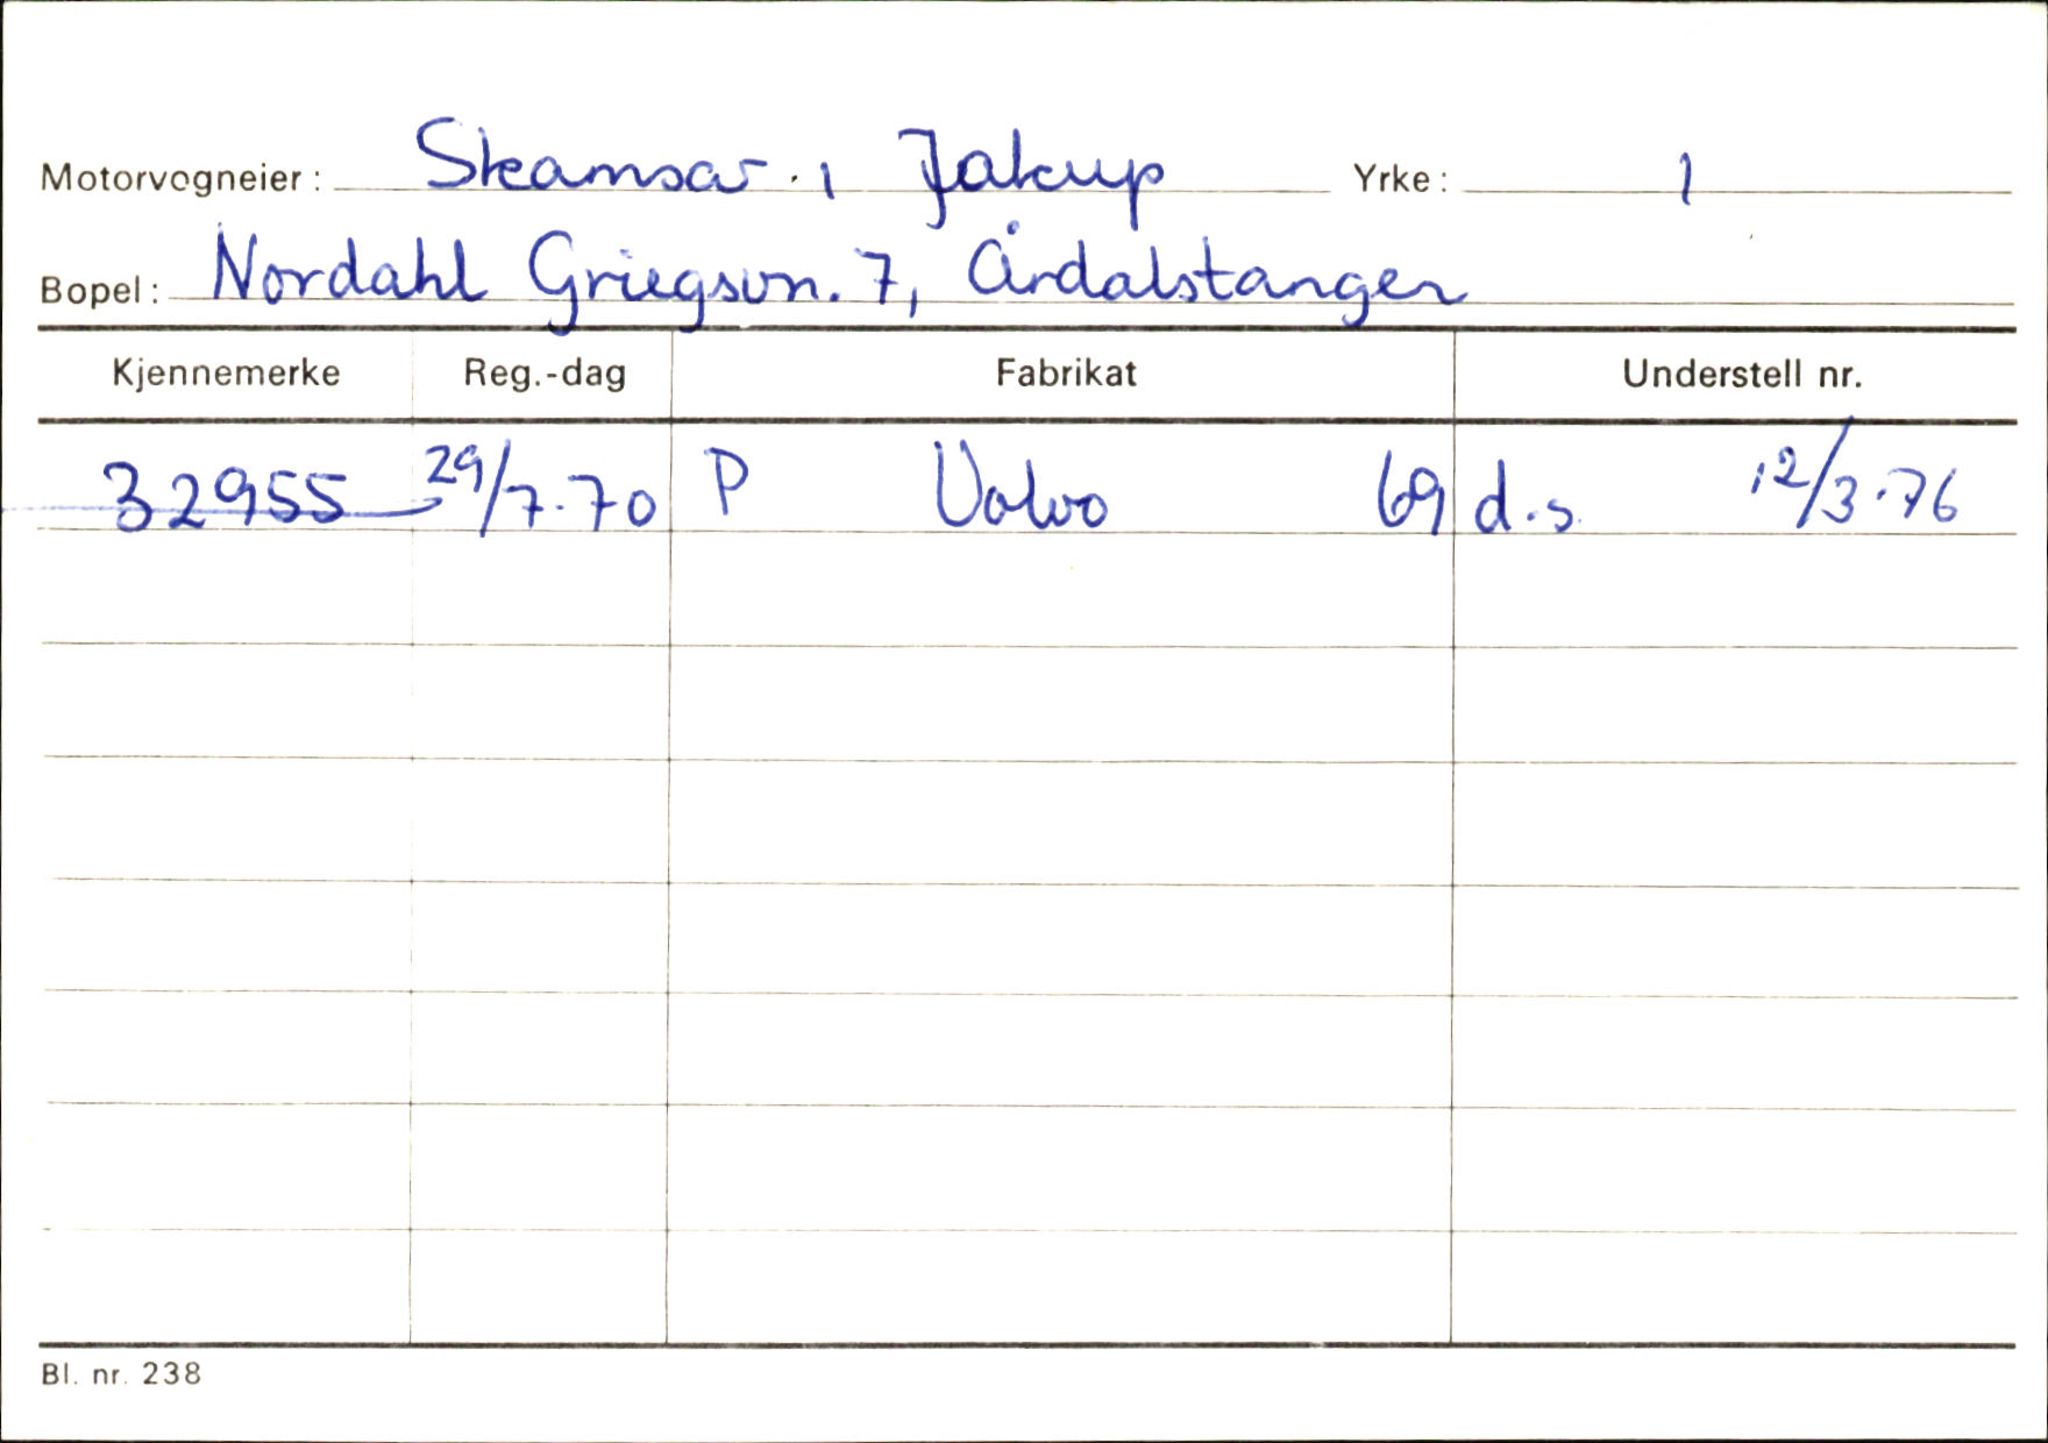 Motorvogneier: Skamsar, Jakup Yrke: 1
Bopel: Nordahl Griegsvn. 7, Årdalstangen
Kjennemerke Reg.-dag Fabrikat Understell nr.
32955 29/7.70 P Volvo 69 d.s. 12/3.76
Bl. nr. 238